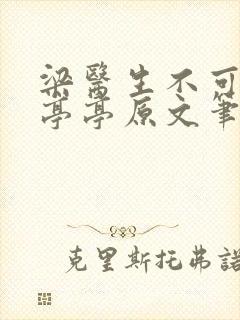 梁醫生不可
亭亭原文筆
克里斯托弗諾